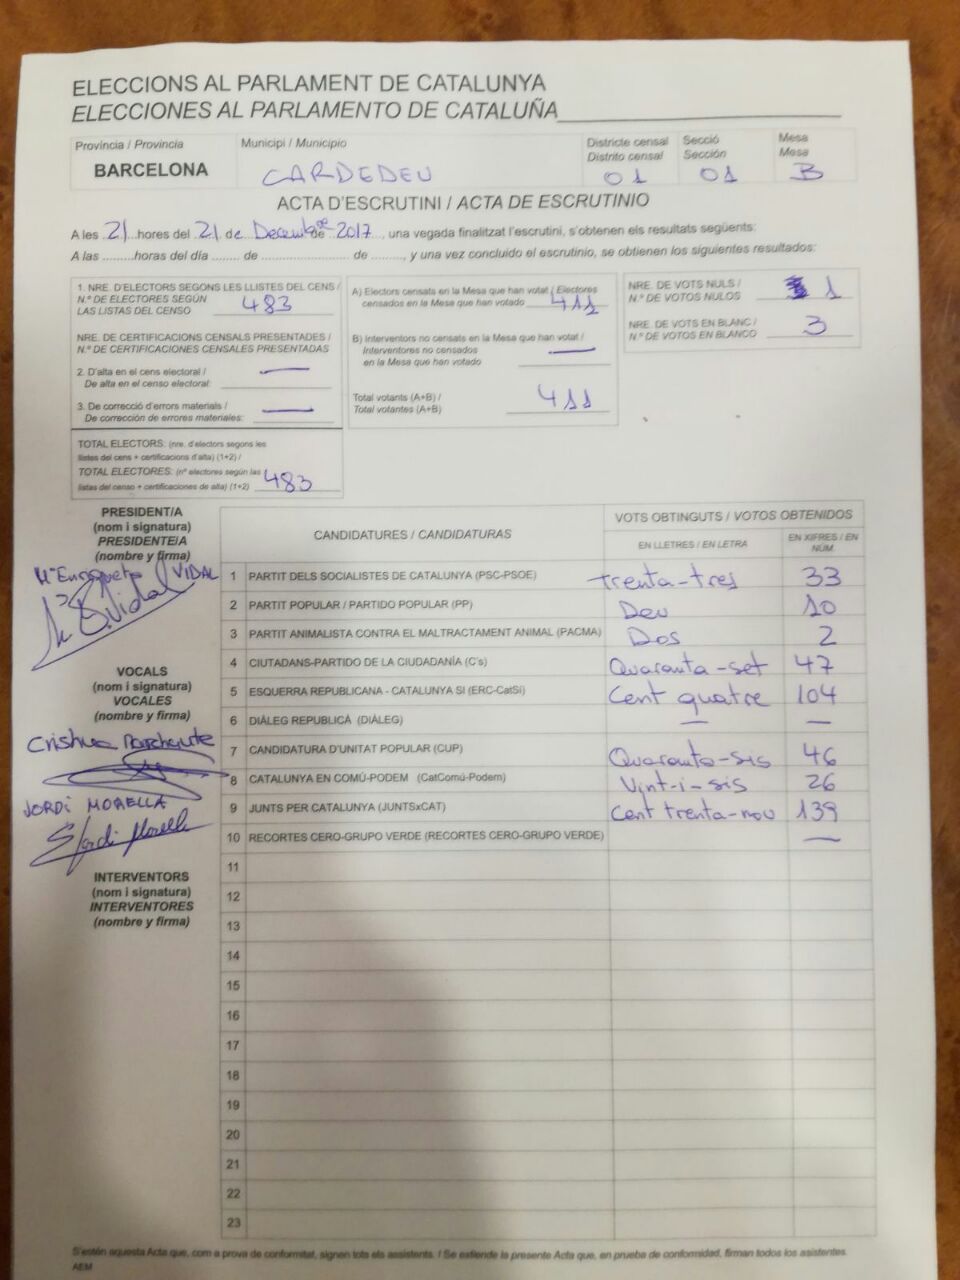 ELECCIONS AL PARLAMENT DE CATALUNYA
ELECCIONES AL PARLAMENTO DE CATALUÑA
Província / Provincia
BARCELONA
Municipi / Municipio
CARDEDEU
Districte censal
Distrito censal
01
Secció
Sección
01
Mesa
Mesa
B
ACTA D'ESCRUTINI / ACTA DE ESCRUTINIO
A les 21 hores del 21 de Decembre de 2017, una vegada finalitzat l'escrutini, s'obtenen els resultats següents:
A las .........horas del día ........ de .............................. de ........., y una vez concluido el escrutinio, se obtienen los siguientes resultados:
1. NRE. D'ELECTORS SEGONS LES LLISTES DEL CENS /
N.º DE ELECTORES SEGÚN
LAS LISTAS DEL CENSO 483
NRE. DE CERTIFICACIONS CENSALS PRESENTADES /
N.º DE CERTIFICACIONES CENSALES PRESENTADAS
2. D'alta en el cens electoral /
De alta en el censo electoral: —
3. De correcció d'errors materials /
De corrección de errores materiales: —
TOTAL ELECTORS: (nre. d'electors segons les
llistes del cens + certificacions d'alta) (1+2) /
TOTAL ELECTORES: (nº electores según las
listas del censo + certificaciones de alta) (1+2) 483
A) Electors censats en la Mesa que han votat / Electores
censados en la Mesa que han votado 411
B) Interventors no censats en la Mesa que han votat /
Interventores no censados
en la Mesa que han votado —
Total votants (A+B) /
Total votantes (A+B) 411
NRE. DE VOTS NULS /
N.º DE VOTOS NULOS 1
NRE. DE VOTS EN BLANC /
N.º DE VOTOS EN BLANCO 3
PRESIDENT/A
(nom i signatura)
PRESIDENTE/A
(nombre y firma)
Mª Enriqueta VIDAL
VOCALS
(nom i signatura)
VOCALES
(nombre y firma)
JORDI MORELLA
INTERVENTORS
(nom i signatura)
INTERVENTORES
(nombre y firma)
CANDIDATURES / CANDIDATURAS
VOTS OBTINGUTS / VOTOS OBTENIDOS
EN LLETRES / EN LETRA
EN XIFRES / EN NÚM.
1 PARTIT DELS SOCIALISTES DE CATALUNYA (PSC-PSOE) trenta-tres 33
2 PARTIT POPULAR / PARTIDO POPULAR (PP) Deu 10
3 PARTIT ANIMALISTA CONTRA EL MALTRACTAMENT ANIMAL (PACMA) Dos 2
4 CIUTADANS-PARTIDO DE LA CIUDADANÍA (C's) Quaranta-set 47
5 ESQUERRA REPUBLICANA - CATALUNYA SI (ERC-CatSí) Cent quatre 104
6 DIÀLEG REPUBLICÀ (DIÀLEG) — —
7 CANDIDATURA D'UNITAT POPULAR (CUP) Quaranta-sis 46
8 CATALUNYA EN COMÚ-PODEM (CatComú-Podem) Vint-i-sis 26
9 JUNTS PER CATALUNYA (JUNTSxCAT) Cent trenta-nou 139
10 RECORTES CERO-GRUPO VERDE (RECORTES CERO-GRUPO VERDE) —
11
12
13
14
15
16
17
18
19
20
21
22
23
S'estén aquesta Acta que, com a prova de conformitat, signen tots els assistents. / Se extiende la presente Acta que, en prueba de conformidad, firman todos los asistentes.
AEM